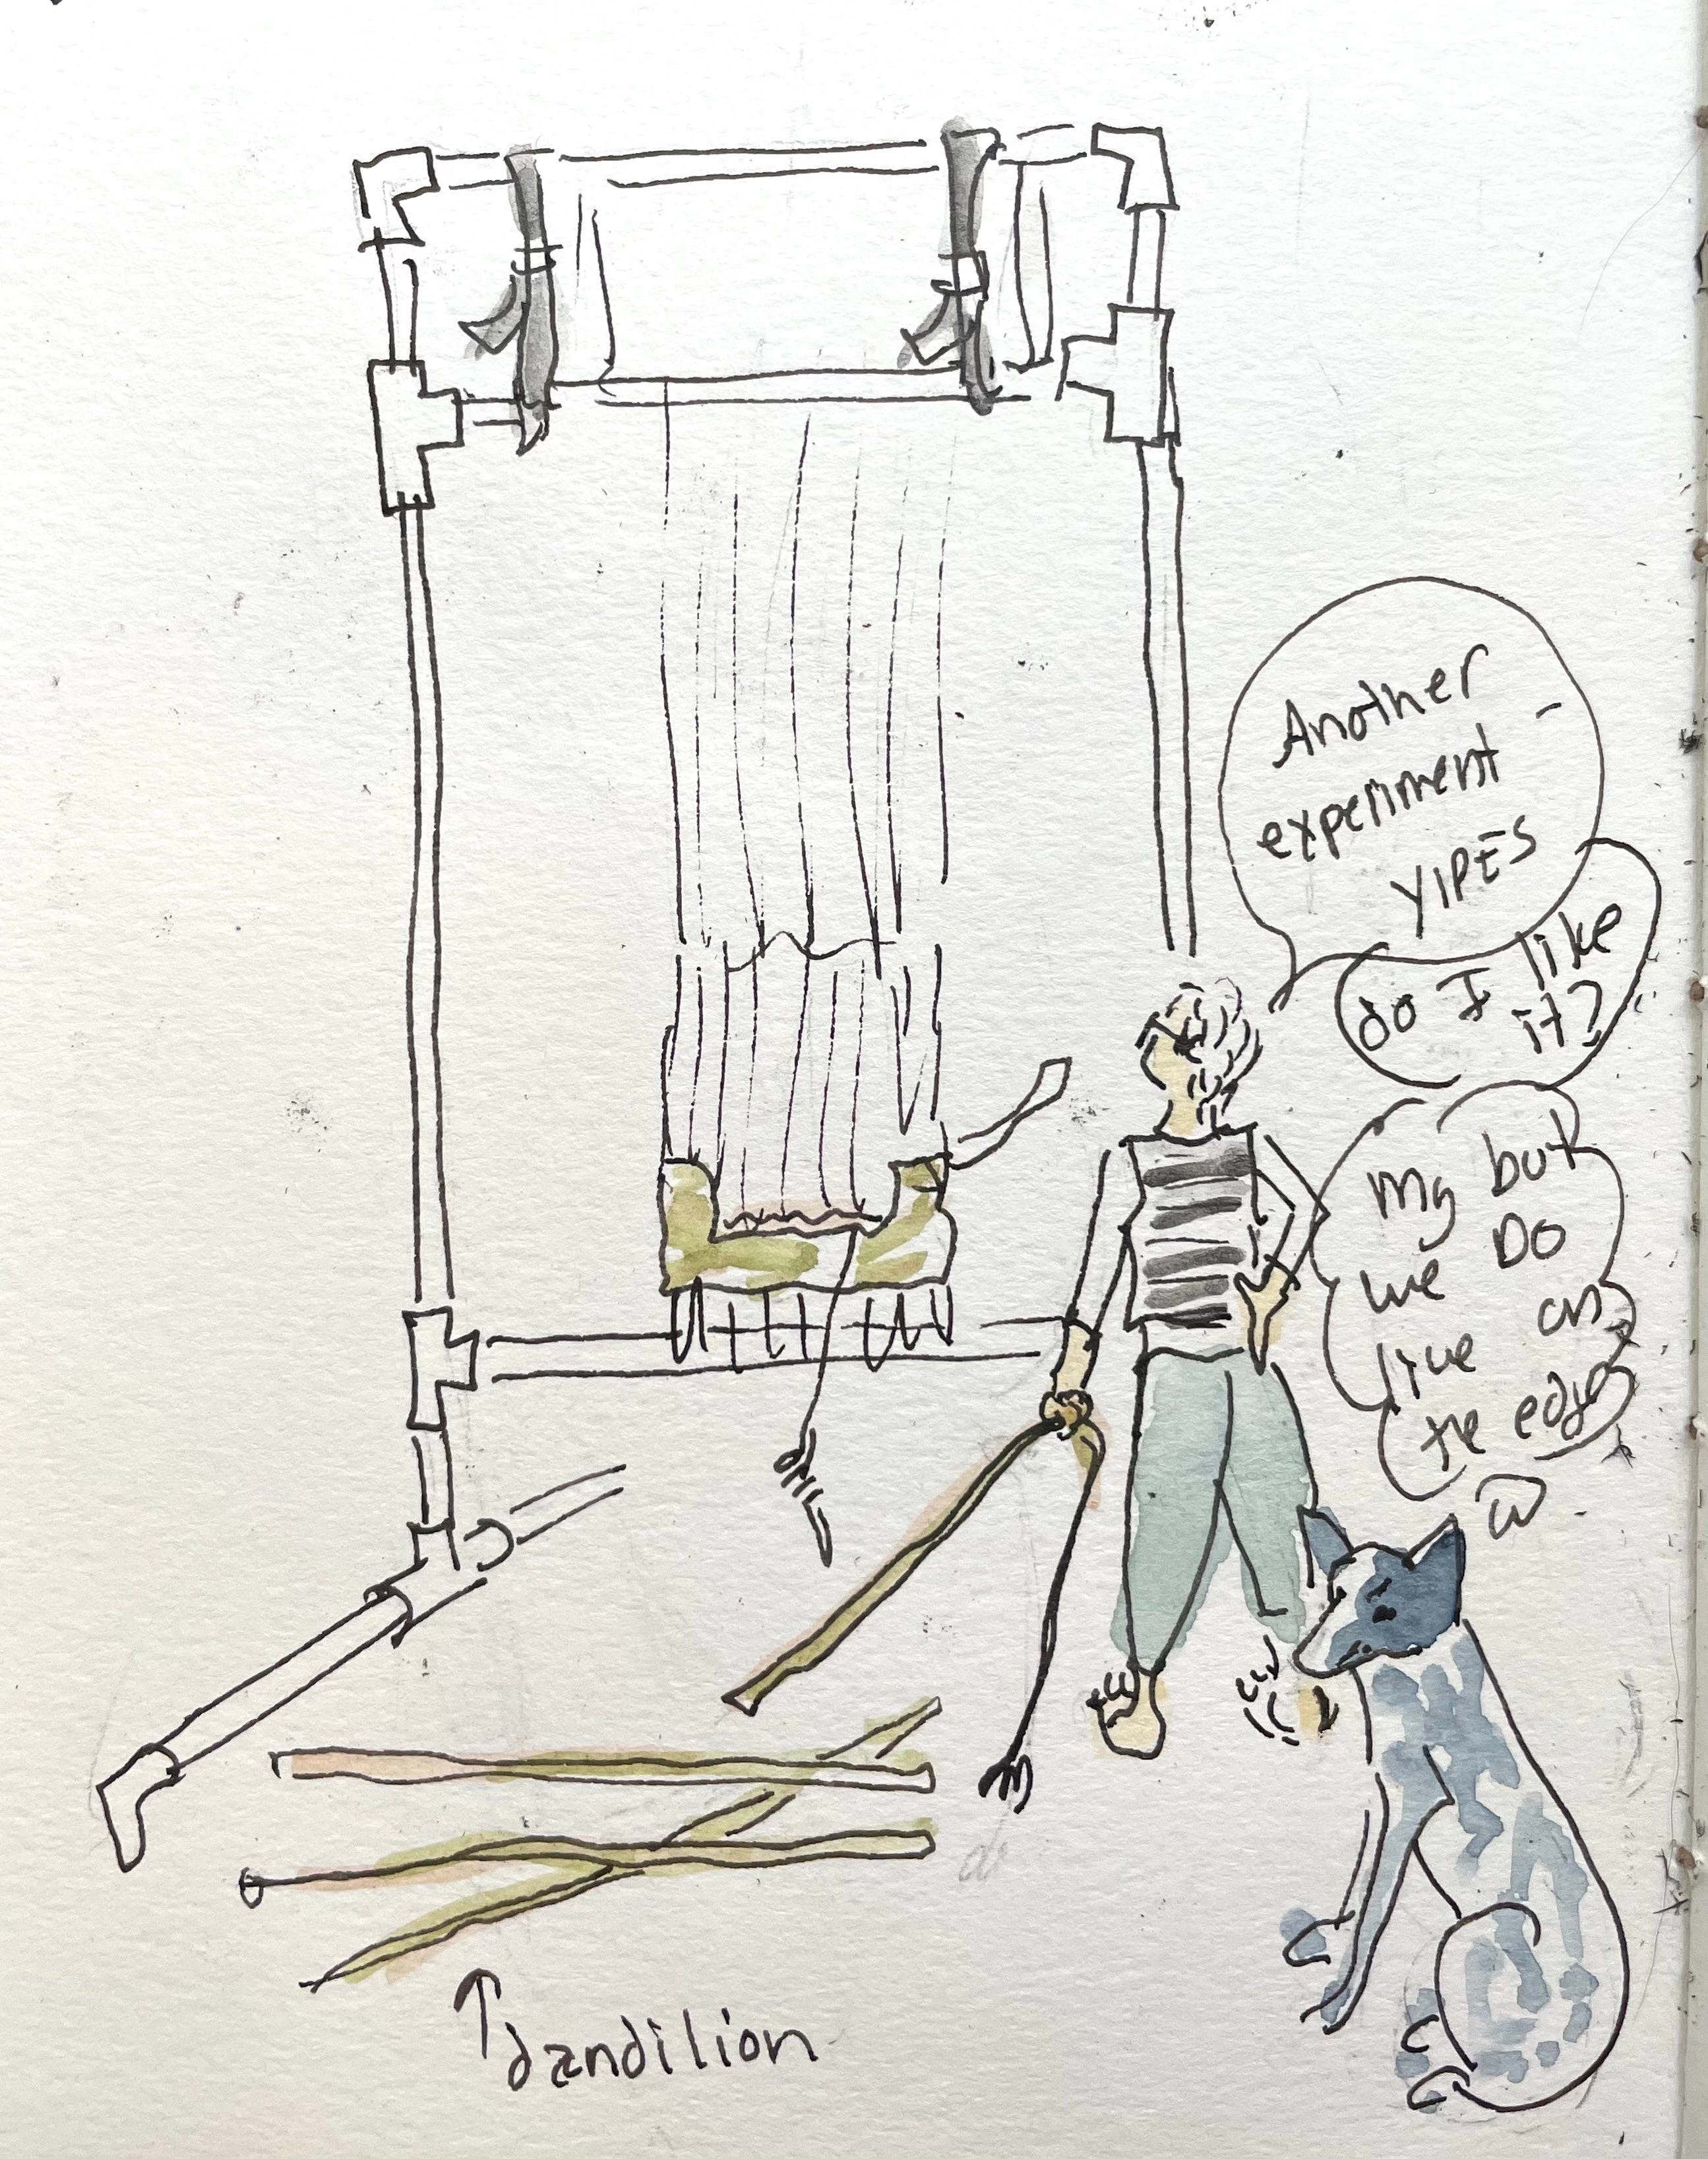 Another
experiment -
YIPES
do I like
it?
my but
we DO
live on
the edge
dandilion